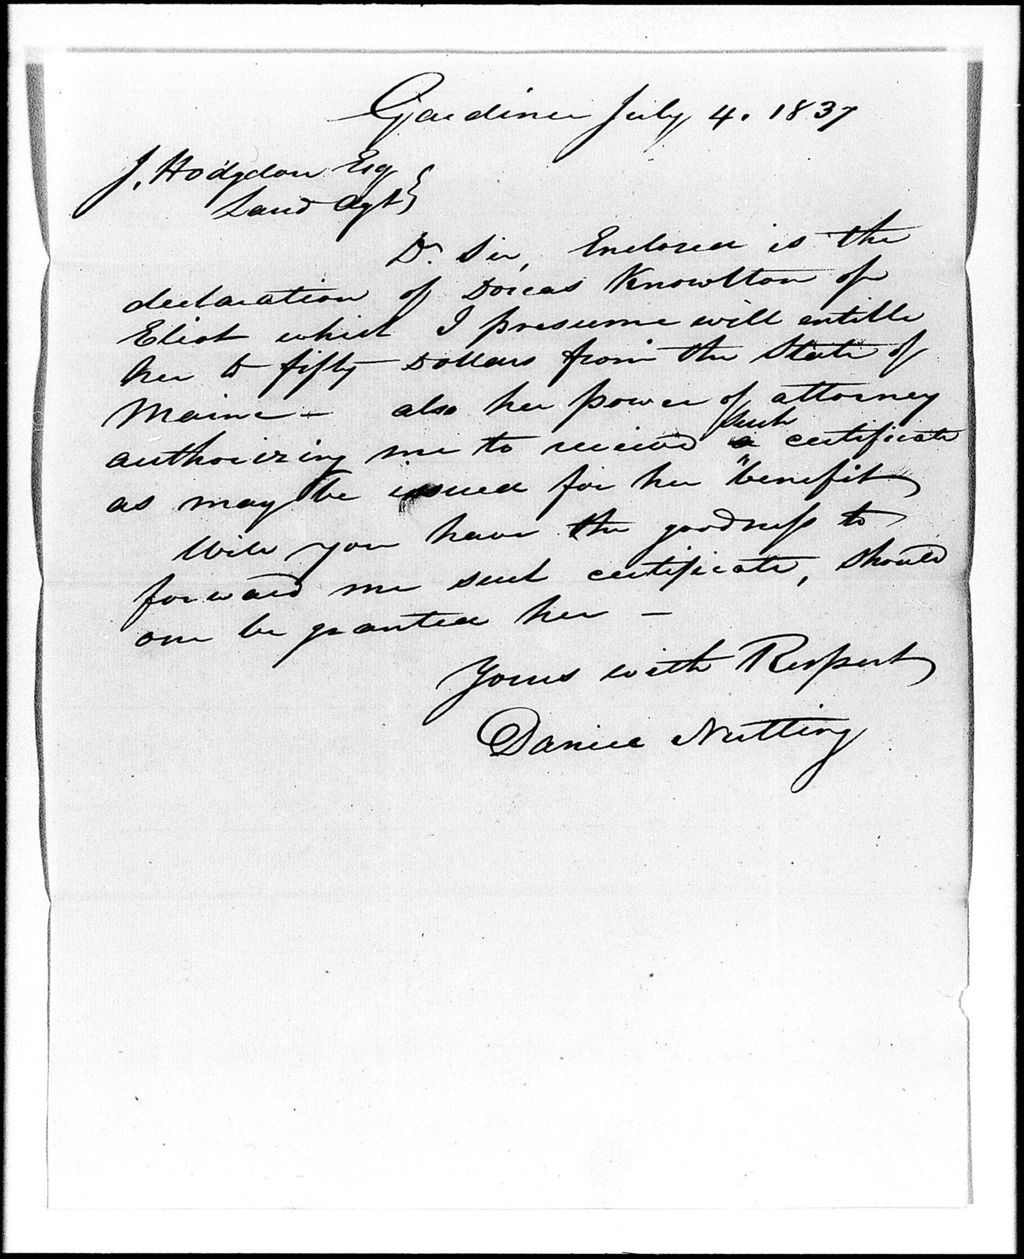 Gardiner July 4. 1837
J. Hodgdon Esq
Land Agt
Dr Sir, Enclosed is the
declaration of Dorcas Knowlton of
Eliot which I presume will entitle
her to fifty Dollars from the State of
Maine - also her power of attorney
authorizing me to receive such certificate
as may be issued for her benefit
Will you have the goodness to
forward me such certificate, should
one be granted her -
Yours with Respect
Daniel Nutting